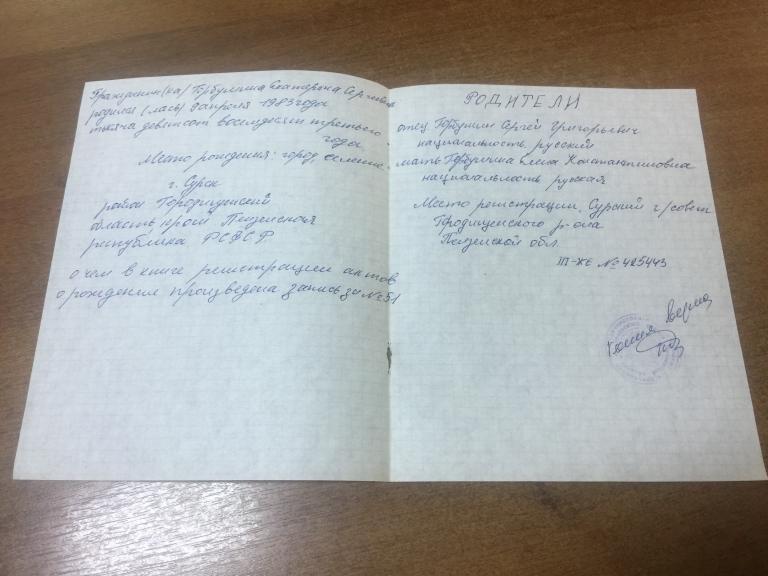 Гражданин(ка) Горбунина Екатерина Сергеевна
родился (лась) 9 апреля 1983 года
тысяча девятсот восемдесят третьего
года
Место рождения: город, селение -
г. Сурск
район Городищенский
область, край Пензенская
республика РСФСР
о чем в книге регистрации актов
о рождение произведена запись за № 51
РОДИТЕЛИ
отец Горбунин Сергей Григорьевич
национальность русский
мать Горбунина Елена Константиновна
национальность русская
Место регистрации Сурский г/совет
Городищенского р-она
Пензенской обл.
III-ЖЕ № 425443
Копия верна